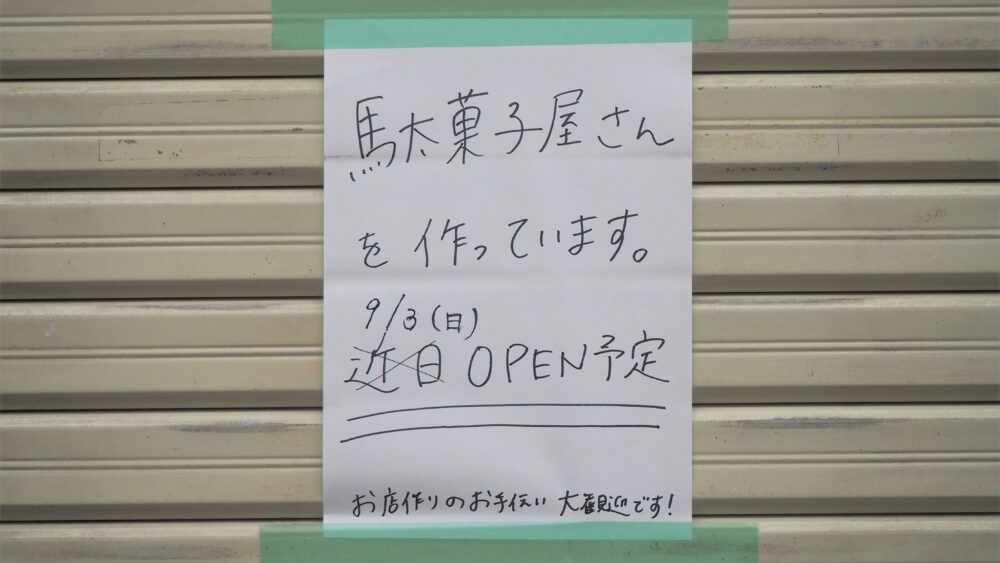 駄菓子屋さん
を作っています。
9/3(日)
近日 OPEN予定
お店作りのお手伝い 大歓迎です!